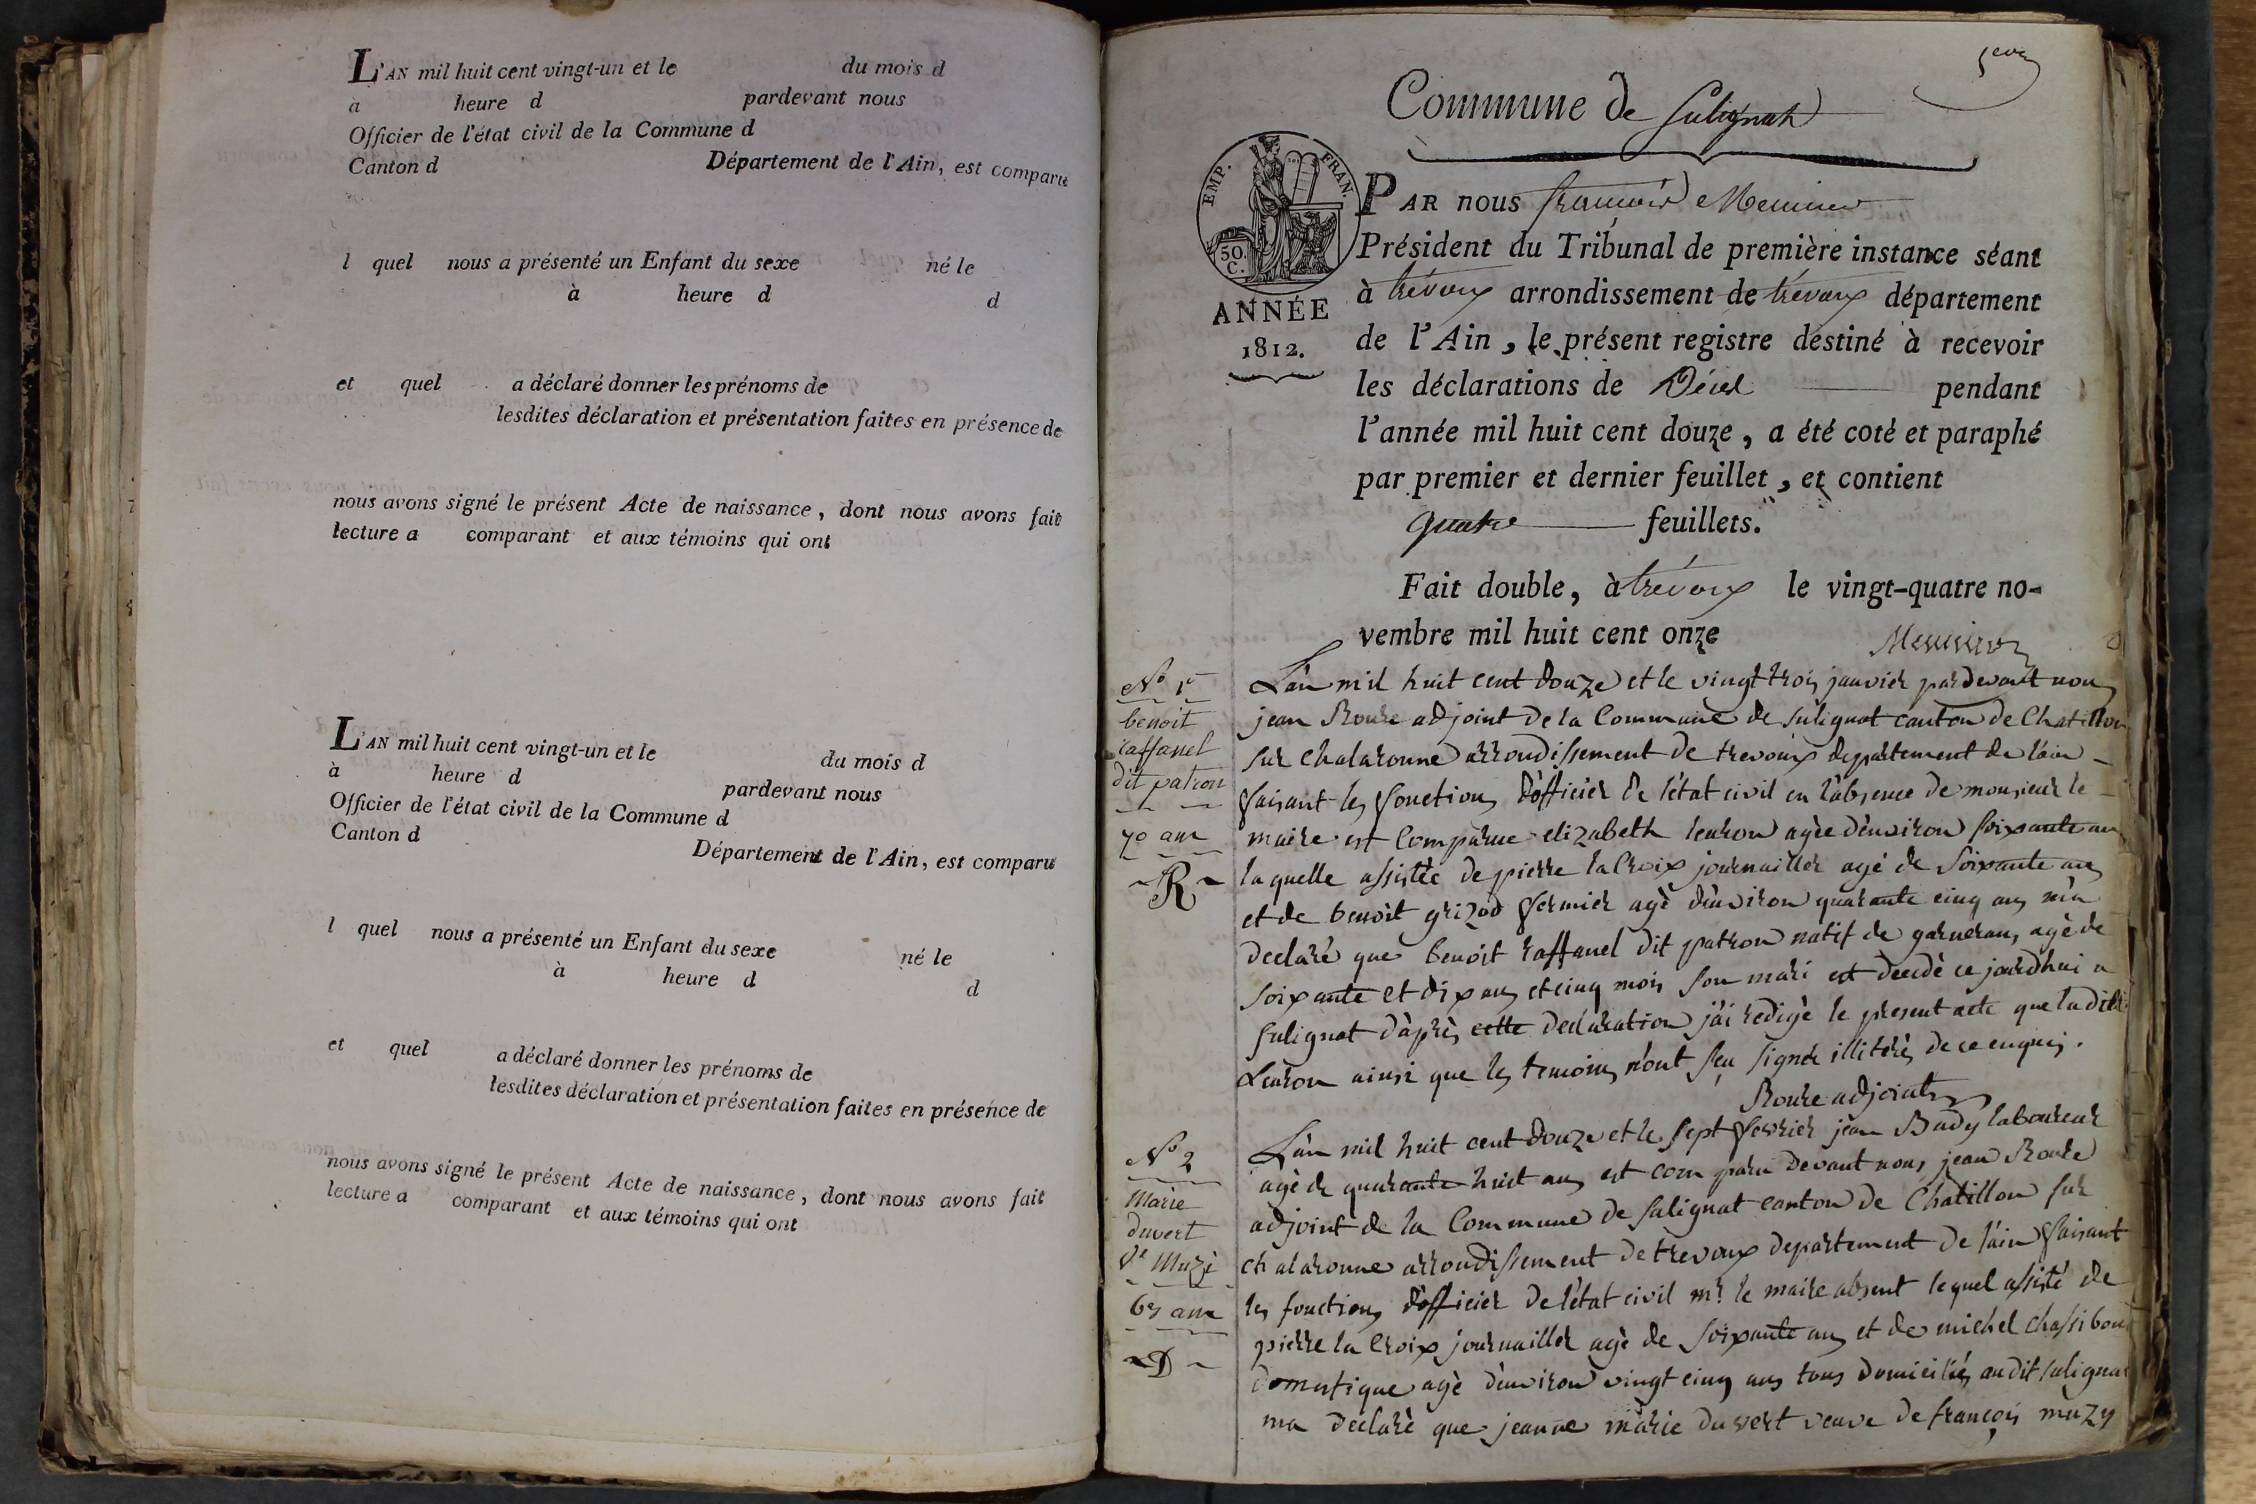 L'AN mil huit cent vingt-un et le du mois d
à heure d pardevant nous
Officier de l'état civil de la Commune d
Canton d Département de l'Ain, est comparu
l quel nous a présenté un Enfant du sexe né le
à heure d d
et quel a déclaré donner les prénoms de
lesdites déclaration et présentation faites en présence de
nous avons signé le présent Acte de naissance, dont nous avons fait
lecture a comparant et aux témoins qui ont
L'AN mil huit cent vingt-un et le du mois d
à heure d pardevant nous
Officier de l'état civil de la Commune d
Canton d Département de l'Ain, est comparu
l quel nous a présenté un Enfant du sexe né le
à heure d d
et quel a déclaré donner les prénoms de
lesdites déclaration et présentation faites en présence de
nous avons signé le présent Acte de naissance, dont nous avons fait
lecture a comparant et aux témoins qui ont
Commune de Sulignat
EMP. FRAN.
50.
C.
ANNÉE
1812.
PAR nous françois
Président du Tribunal de première instance séant
à trévoux arrondissement de trévoux département
de l'Ain, le présent registre destiné à recevoir
les déclarations de Décès pendant
l'année mil huit cent douze, a été coté et paraphé
par premier et dernier feuillet, et contient
quatre feuillets.
Fait double, à trévoux le vingt-quatre no-
vembre mil huit cent onze
N° 1er
benoit
raffanel
dit patron
70 ans
R
L'an mil huit cent douze et le vingt trois janvier pardevant nous
jean Roure adjoint de la Commune de Sulignat canton de Chatillon
sur chalaronne arrondissement de trevoux departement de l'ain
faisant les fonctions d'officier de l'état civil en l'absence de monsieur le
maire est comparue elizabeth agée d'environ soixante ans
laquelle assistée de pierre la Croix journaillier agé de soixante ans
et de benoit grizod fermier agé d'environ quarante cinq ans m'a
declaré que benoit raffanel dit patron natif de garnerans agé de
soixante et dix ans et cinq mois son mari est decedé ce jourd'hui a
sulignat d'après cette declaration j'ai redigé le present acte que ladite
ainsi que les temoins n'ont seu signer illitérés de ce enquis.
Roure adjoint
N° 2
Marie
duvert
Ve Muzi
D
L'an mil huit cent douze et le sept fevrier jean Bady laboureur
agé de quarante huit ans est comparu devant nous jean Roure
adjoint de la Commune de Sulignat canton de Chatillon sur
chalaronne arrondissement de trevoux departement de l'ain faisant
les fonctions d'officier de l'état civil mr le maire absent lequel assisté de
pierre la Croix journaillier agé de soixante ans et de michel
domestique agé d'environ vingt cinq ans tous domiciliés audit sulignat
ma declaré que jeanne marie duvert veuve de françois muzy